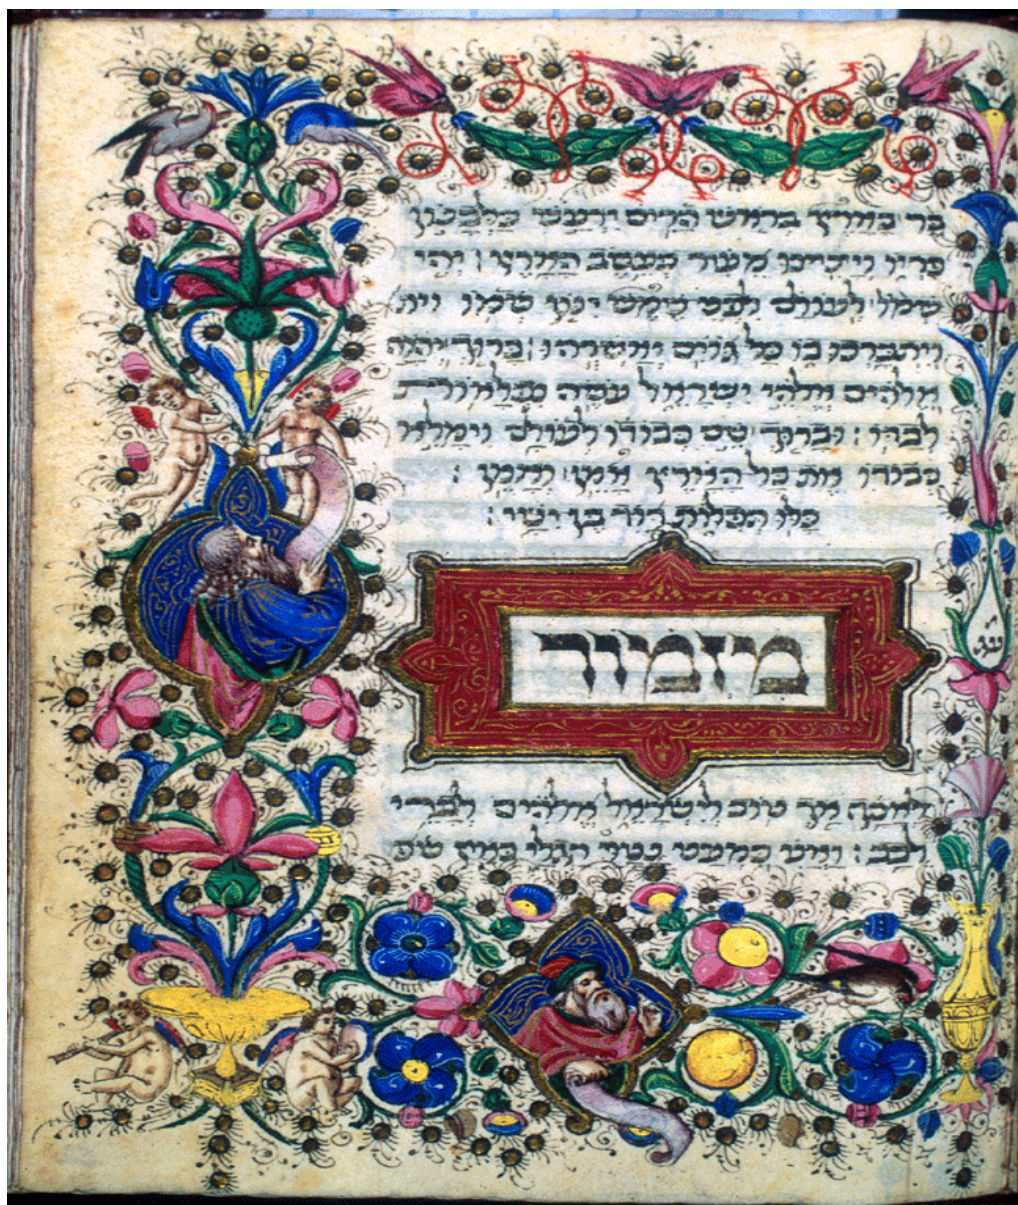 בר בארץ בראש הרים ירעש כלבנון
פריו ויציצו מעיר כעשב הארץ : יהי
שמו לעולם לפני שמש ינון שמו וית
ויתברכו בו כל גוים יאשרהו : ברוך יהוה
אלהים אלהי ישראל עשה נפלאות
לבדו : וברוך שם כבודו לעולם וימלא
כבודו את כל הארץ אמן ואמן :
כלו תפלות דוד בן ישי :
מזמור
לאסף אך טוב לישראל אלהים לברי
לבב : ואני כמעט נטוי רגלי כאין